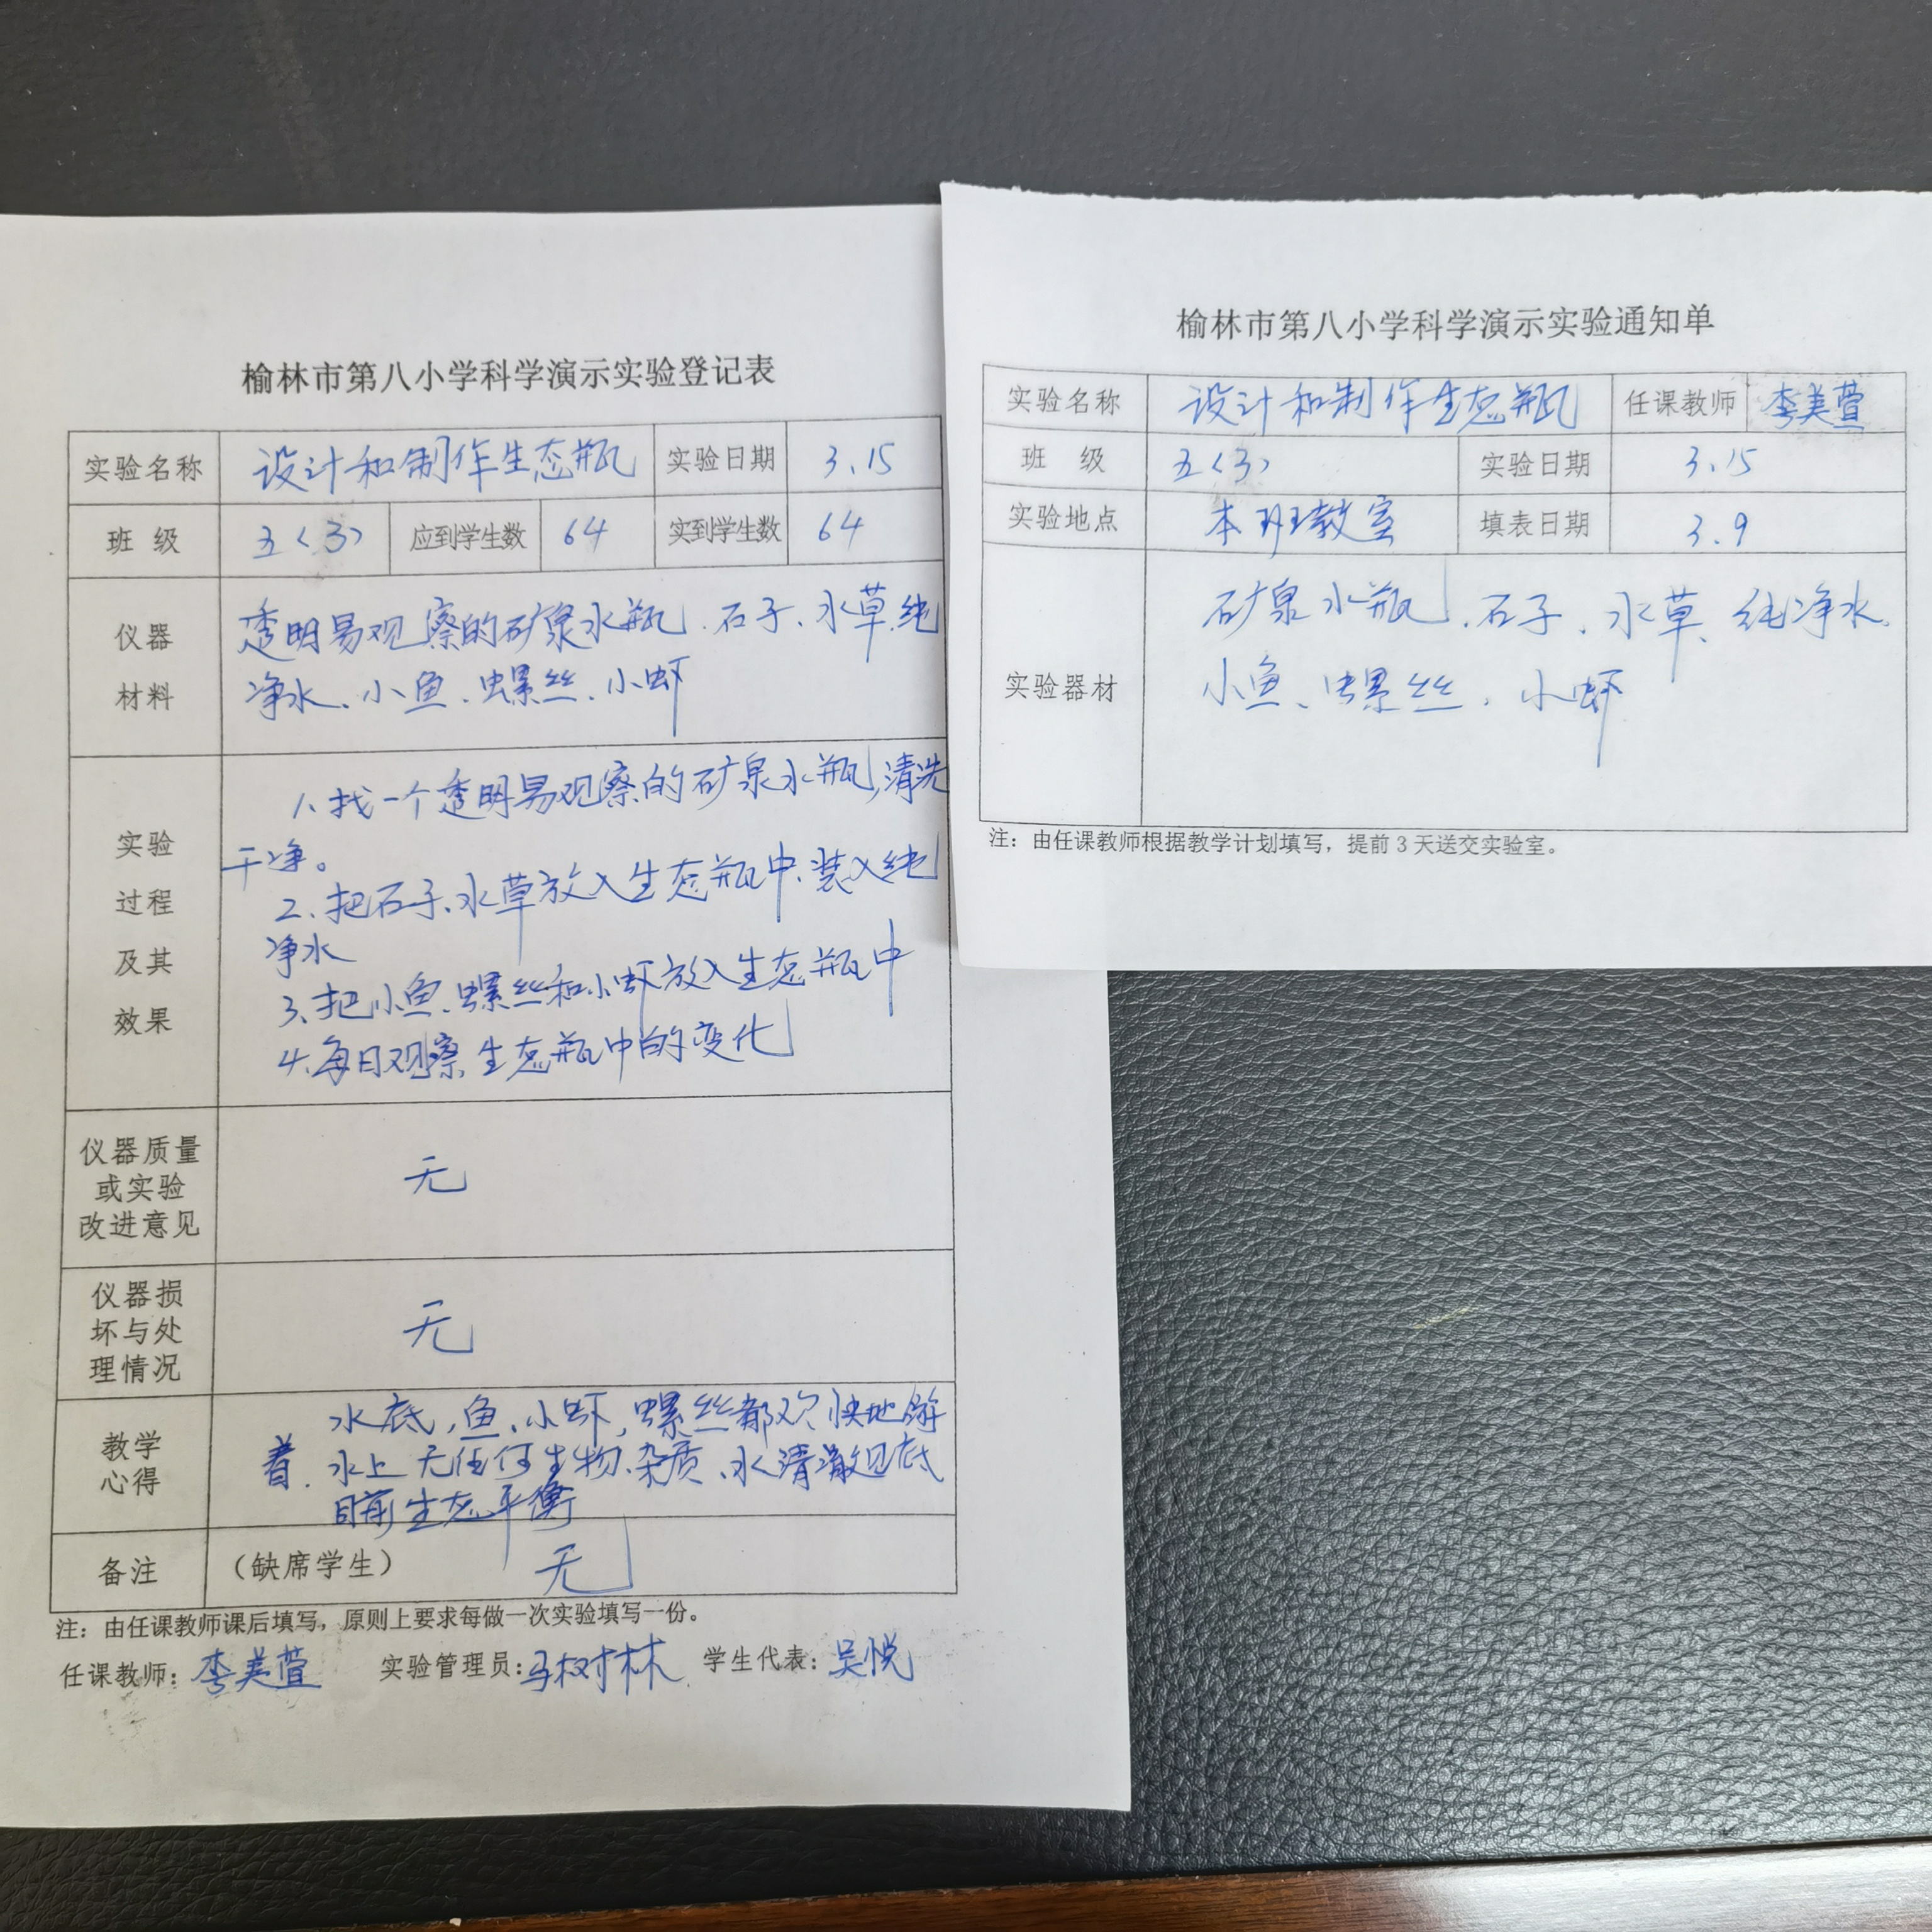 榆林市第八小学科学演示实验登记表
实验名称 设计和制作生态瓶 实验日期 3.15
班 级 五<3> 应到学生数 64 实到学生数 64
仪器
材料
透明易观察的矿泉水瓶、石子、水草、纯
净水、小鱼、螺丝、小虾
实验
过程
及其
效果
1、找一个透明易观察的矿泉水瓶,清洗
干净。
2、把石子、水草放入生态瓶中、装入纯
净水
3、把小鱼、螺丝和小虾放入生态瓶中
4、每日观察生态瓶中的变化
仪器质量
或实验
改进意见
无
仪器损
坏与处
理情况
无
教学
心得
水底,鱼、小虾,螺丝都欢快地
着.水上无任何生物、杂质、水清澈见底
目前生态平衡
备注 (缺席学生) 无
注：由任课教师课后填写，原则上要求每做一次实验填写一份。
任课教师：李美萱 实验管理员：马树林 学生代表：吴悦
榆林市第八小学科学演示实验通知单
实验名称 设计和制作生态瓶 任课教师 李美萱
班 级 五<3> 实验日期 3.15
实验地点 本班教室 填表日期 3.9
实验器材
矿泉水瓶、石子、水草、纯净水、
小鱼、螺丝、小虾
注：由任课教师根据教学计划填写，提前3天送交实验室。